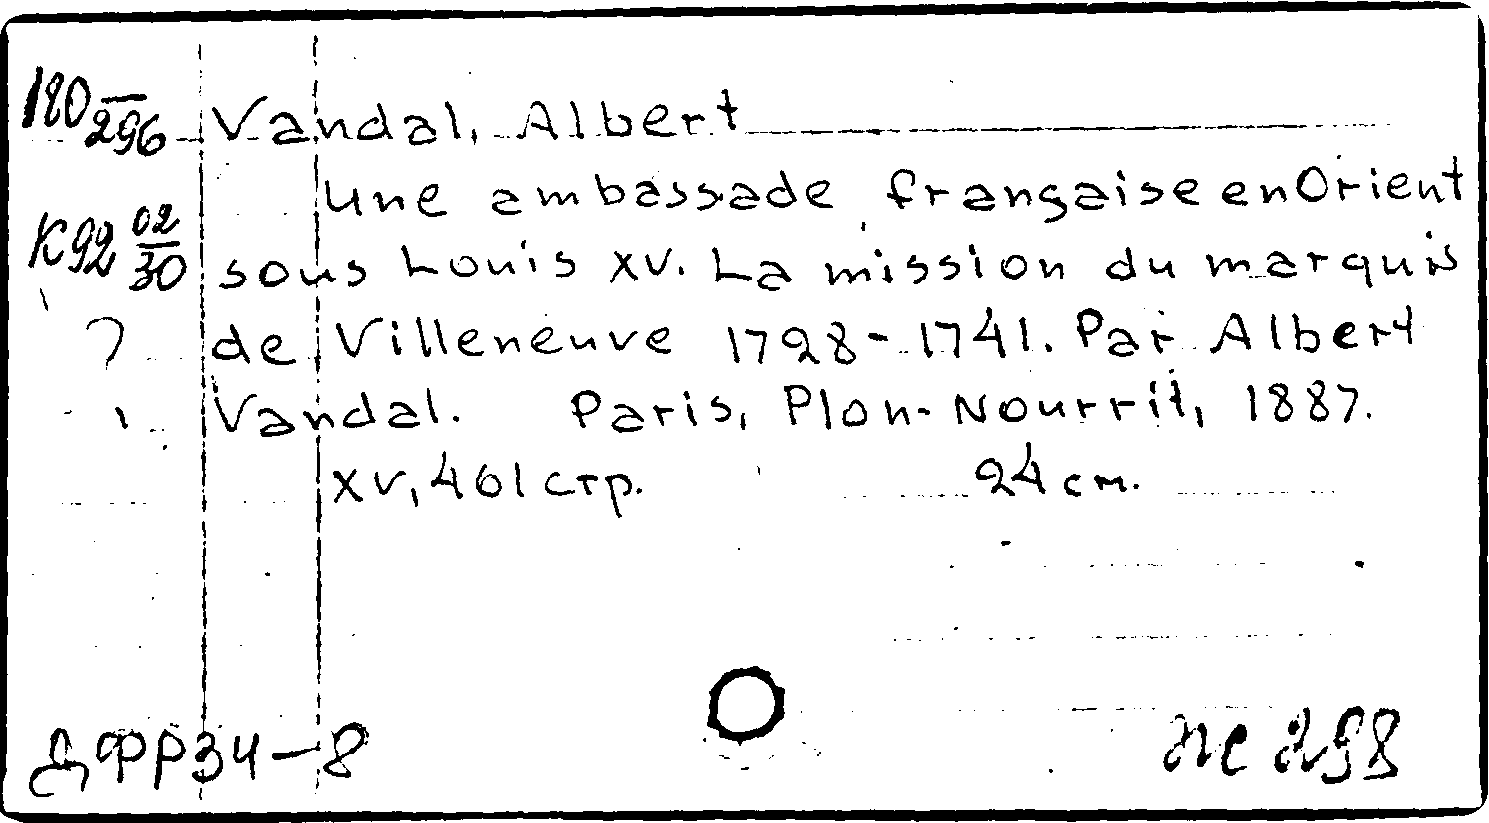 180/296 Vandal, Albert
Une ambassade française en Orient
K92 02/30 sous Louis XV. La mission du marquis
de Villeneuve 1728-1741. Par Albert
Vandal. Paris, Plon-Nourrit, 1887.
XV, 461 стр. 24 см.
ДФР34-8